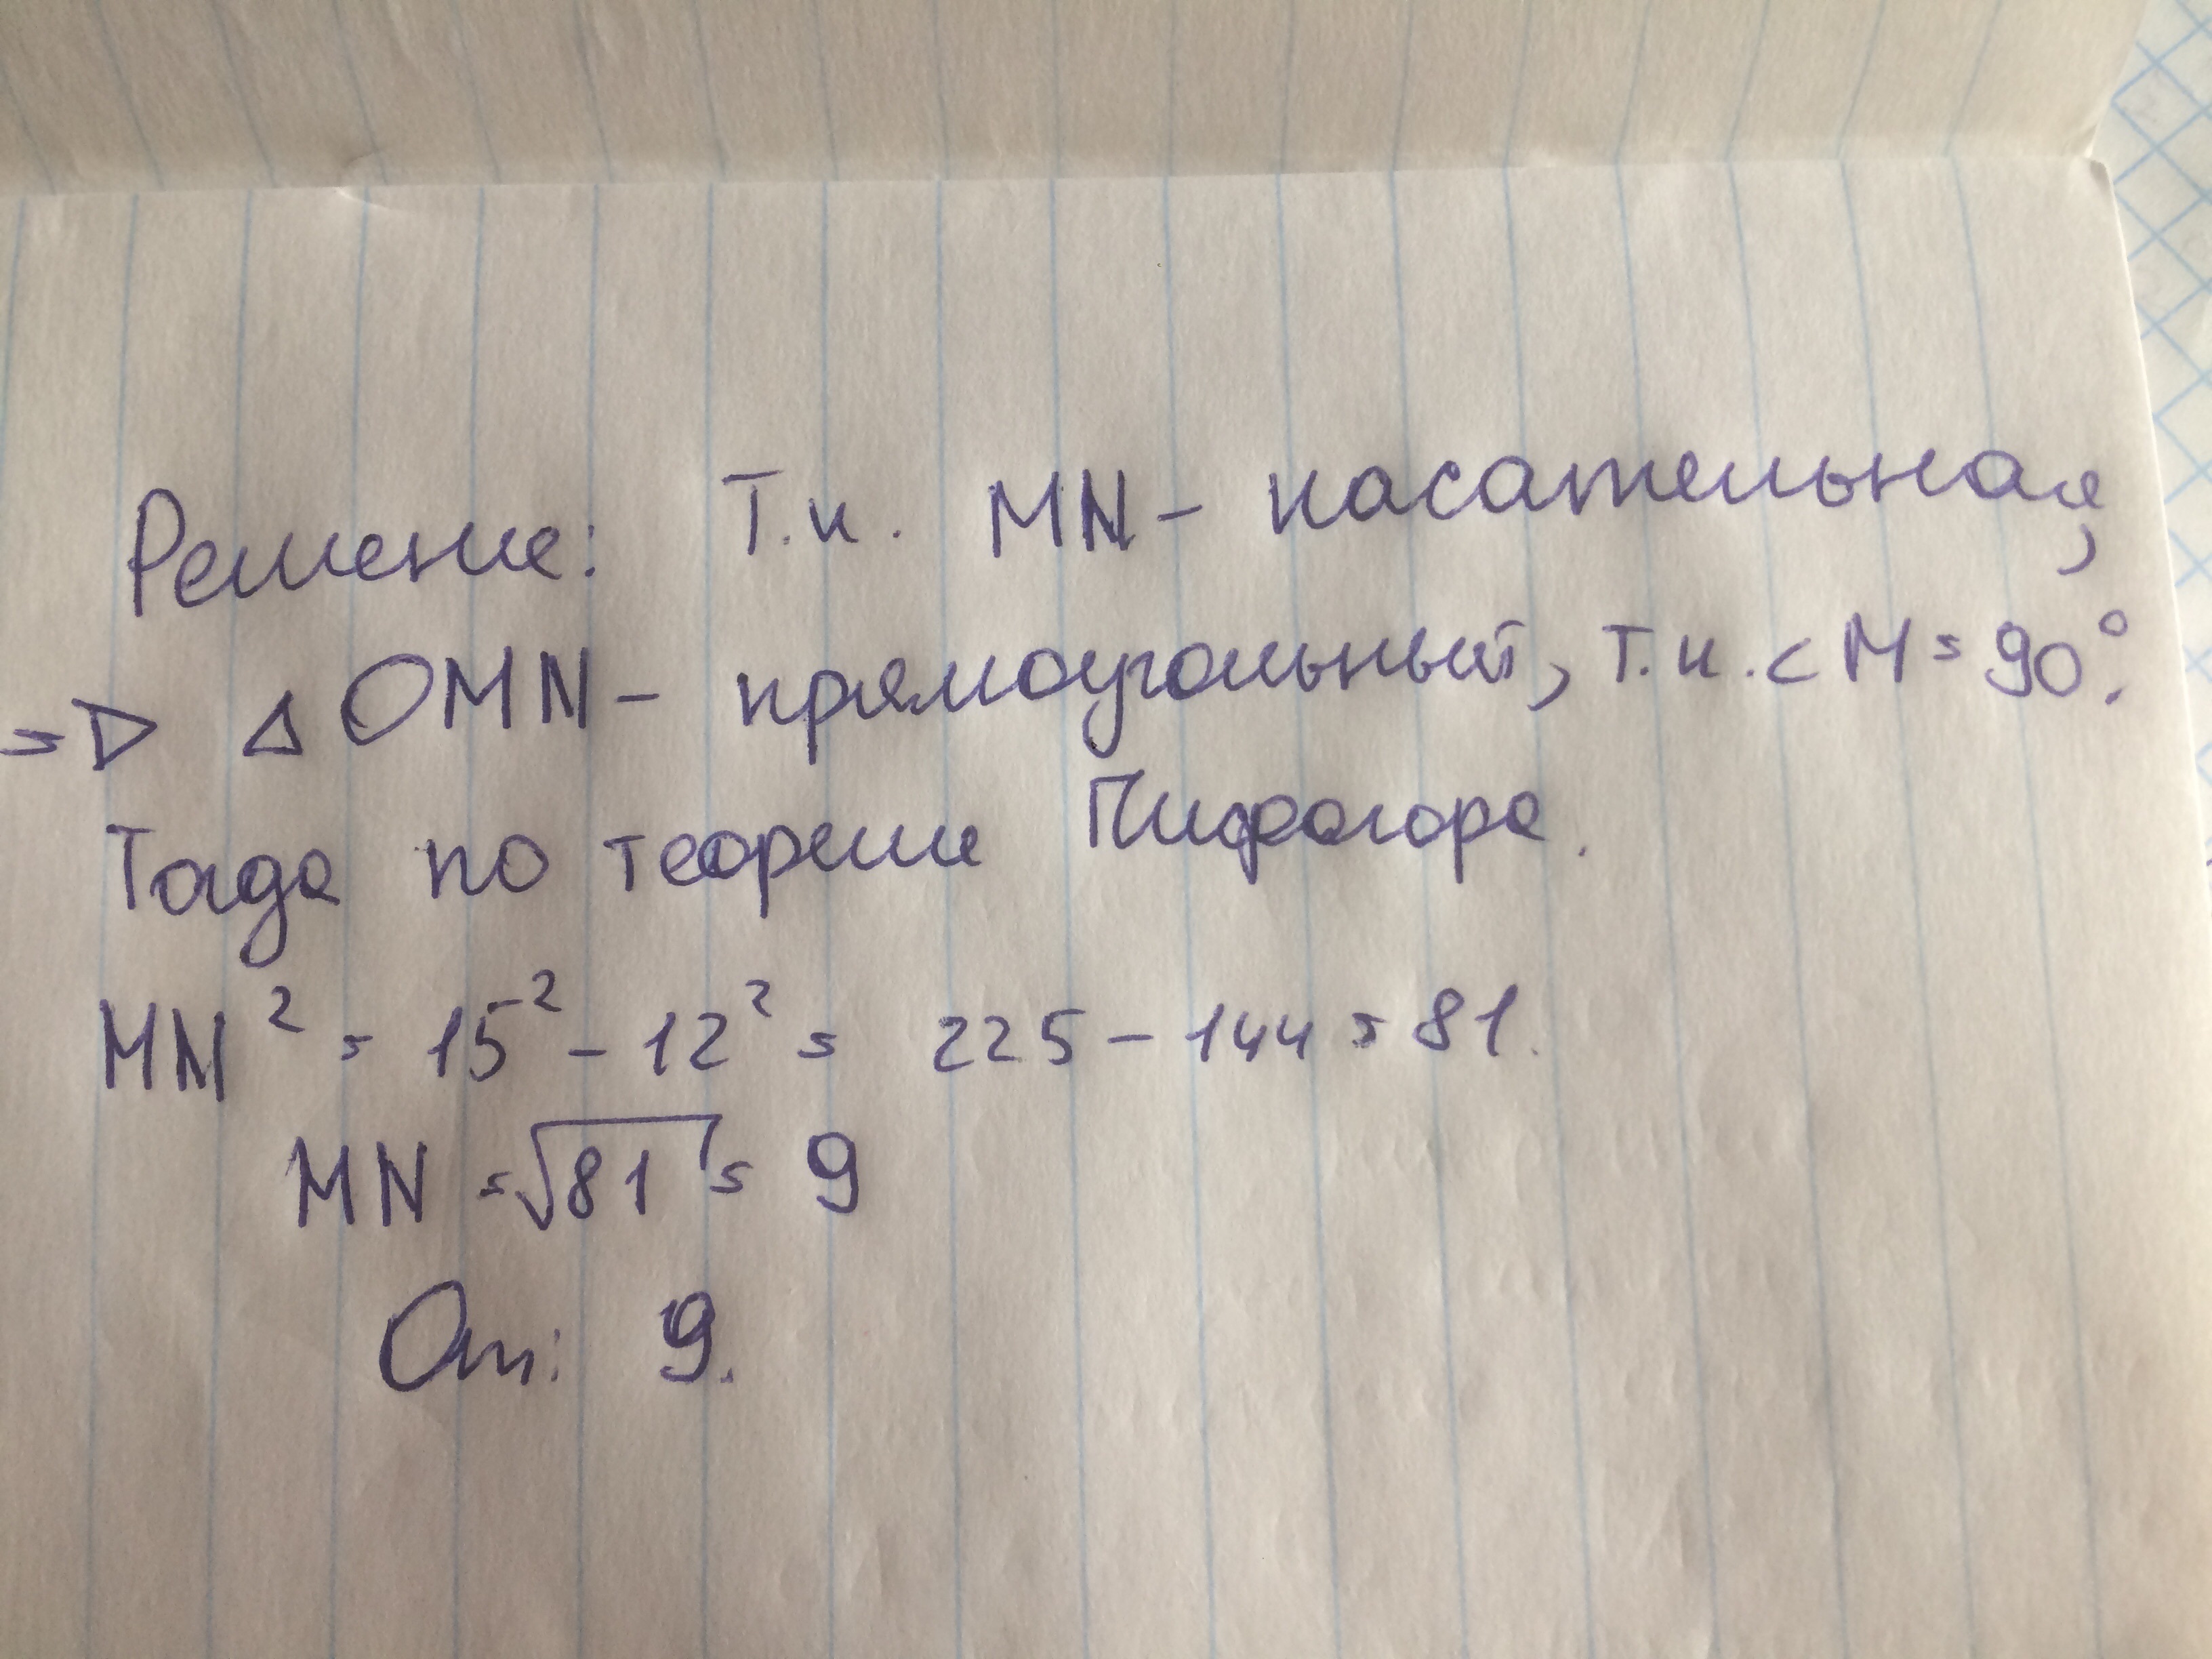 Решение: Т.к. MN - касательная,
=> △ OMN - прямоугольный, т.к. < M = 90°.
Тогда по теореме Пифагора.
MN² = 15² - 12² = 225 - 144 = 81.
MN = √81 = 9
От: 9.